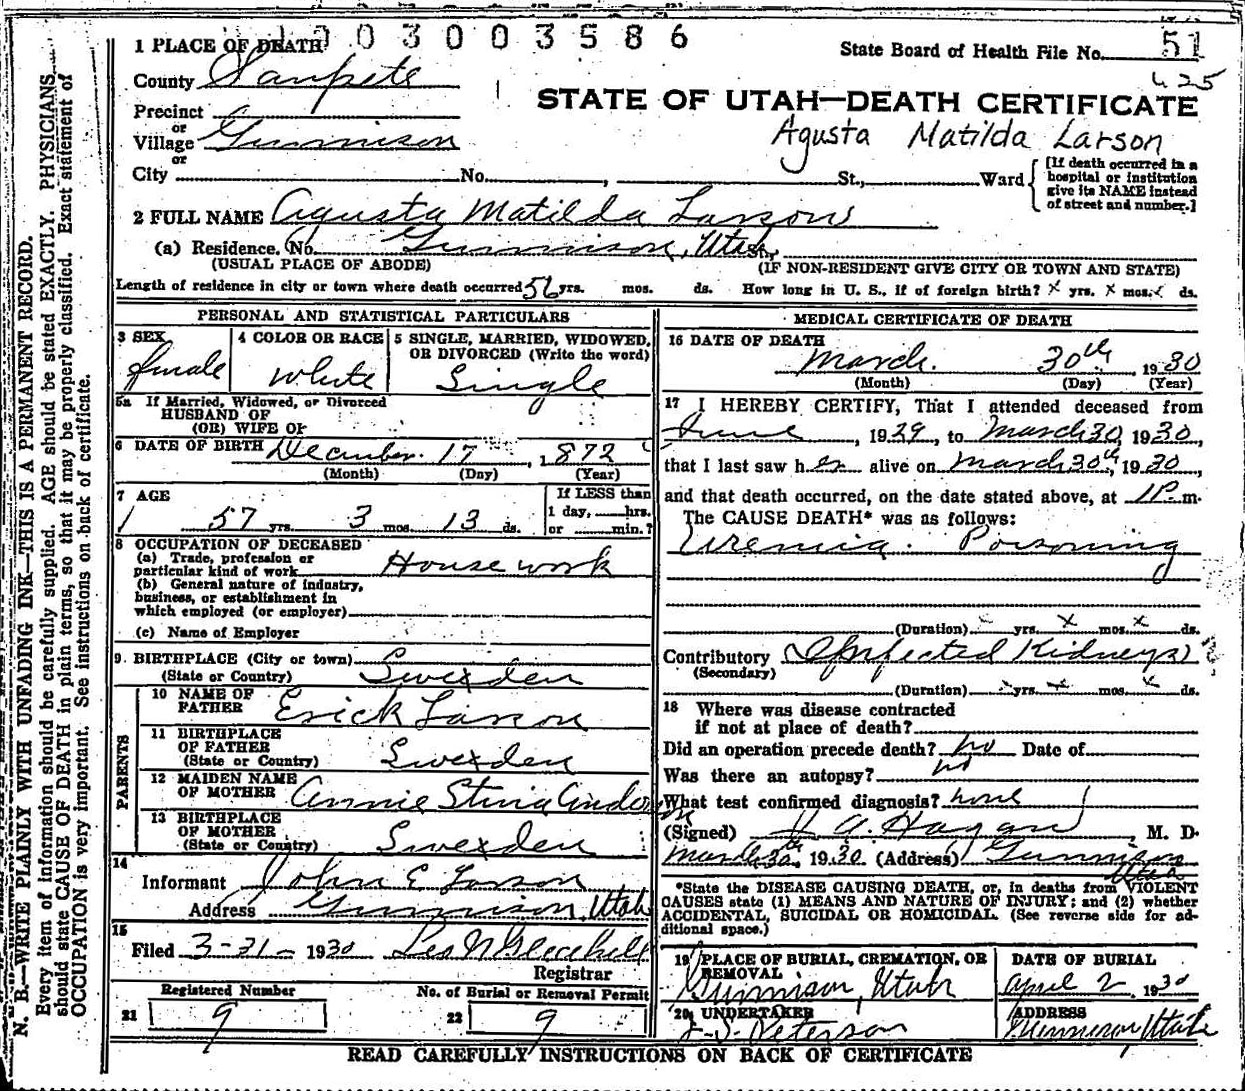 1003003586
State Board of Health File No. 51
425
STATE OF UTAH—DEATH CERTIFICATE
Agusta Matilda Larson
1 PLACE OF DEATH
County Sanpete
Precinct
or
Village Gunnison
or
City No. , St., Ward
[If death occurred in a
hospital or institution
give its NAME instead
of street and number.]
2 FULL NAME Agusta Matilda Larson
(a) Residence. No. Gunnison, Utah St.,
(USUAL PLACE OF ABODE) (IF NON-RESIDENT GIVE CITY OR TOWN AND STATE)
Length of residence in city or town where death occurred 56 yrs. mos. ds. How long in U. S., if of foreign birth? x yrs. x mos. x ds.
PERSONAL AND STATISTICAL PARTICULARS
3 SEX
female
4 COLOR OR RACE
White
5 SINGLE, MARRIED, WIDOWED,
OR DIVORCED (Write the word)
Single
5a If Married, Widowed, or Divorced
HUSBAND OF
(OR) WIFE OF
6 DATE OF BIRTH December 17, 1872
(Month) (Day) (Year)
7 AGE
57 yrs. 3 mos. 13 ds.
If LESS than
1 day, hrs.
or min.?
8 OCCUPATION OF DECEASED
(a) Trade, profession or
particular kind of work House work
(b) General nature of industry,
business, or establishment in
which employed (or employer)
(c) Name of Employer
9. BIRTHPLACE (City or town)
(State or Country) Sweden
PARENTS
10 NAME OF
FATHER Erick Larson
11 BIRTHPLACE
OF FATHER
(State or Country) Sweden
12 MAIDEN NAME
OF MOTHER Annie Stina Anderson
13 BIRTHPLACE
OF MOTHER
(State or Country) Sweden
14
Informant John E Larson
Address Gunnison, Utah
15
Filed 3-31- 1930
Registrar
Registered Number No. of Burial or Removal Permit
21 9 22 9
MEDICAL CERTIFICATE OF DEATH
16 DATE OF DEATH
March 30th, 1930
(Month) (Day) (Year)
17 I HEREBY CERTIFY, That I attended deceased from
June, 1929, to March 30, 1930,
that I last saw her alive on March 30th, 1930,
and that death occurred, on the date stated above, at 11P m.
The CAUSE DEATH* was as follows:
Uremia Poisoning
(Duration) x yrs. x mos. x ds.
Contributory Infected Kidneys
(Secondary)
(Duration) x yrs. x mos. x ds.
18 Where was disease contracted
if not at place of death?
Did an operation precede death? no Date of
Was there an autopsy? no
What test confirmed diagnosis? none
(Signed) J. A. Hagan, M. D.
March 30th, 1930 (Address) Gunnison
Utah
*State the DISEASE CAUSING DEATH, or, in deaths from VIOLENT
CAUSES state (1) MEANS AND NATURE OF INJURY; and (2) whether
ACCIDENTAL, SUICIDAL OR HOMICIDAL. (See reverse side for ad-
ditional space.)
19 PLACE OF BURIAL, CREMATION, OR
REMOVAL
Gunnison, Utah
DATE OF BURIAL
April 2, 1930
20 UNDERTAKER
Peterson
ADDRESS
Gunnison, Utah
READ CAREFULLY INSTRUCTIONS ON BACK OF CERTIFICATE
N. B.—WRITE PLAINLY WITH UNFADING INK—THIS IS A PERMANENT RECORD.
Every item of information should be carefully supplied. AGE should be stated EXACTLY. PHYSICIANS
should state CAUSE OF DEATH in plain terms, so that it may be properly classified. Exact statement of
OCCUPATION is very important. See instructions on back of certificate.